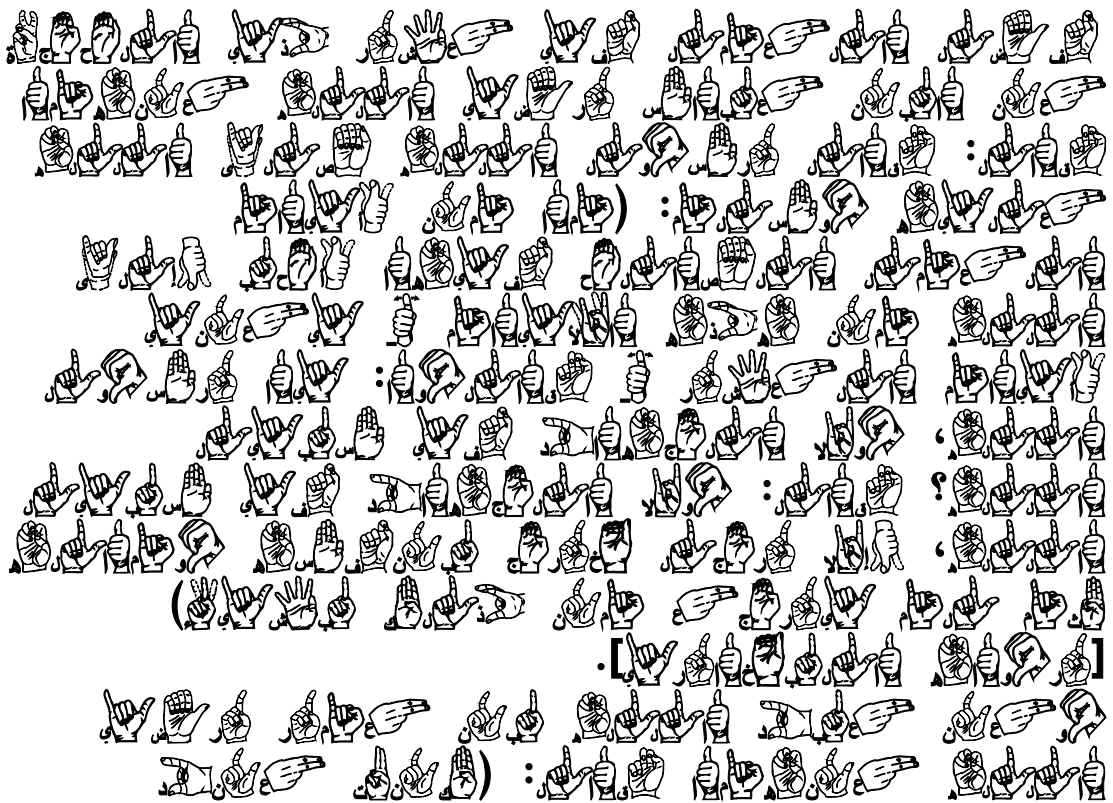 فضل العمل في عشر ذي الحجة
عن ابن عباس رضي الله عنهما
قال: قال رسول الله صلى الله
عليه وسلم: (ما من أيام
العمل الصالح فيها أحب إلى
الله من هذه الأيام ـ يعني
أيام العشر ـ قالوا: يا رسول
الله، ولا الجهاد في سبيل
الله؟ قال: ولا الجهاد في سبيل
الله، إلا رجل خرج بنفسه وماله
ثم لم يرجع من ذلك بشيء)
[رواه البخاري].
وعن عبد الله بن عمر رضي
الله عنهما قال: (كنت عند